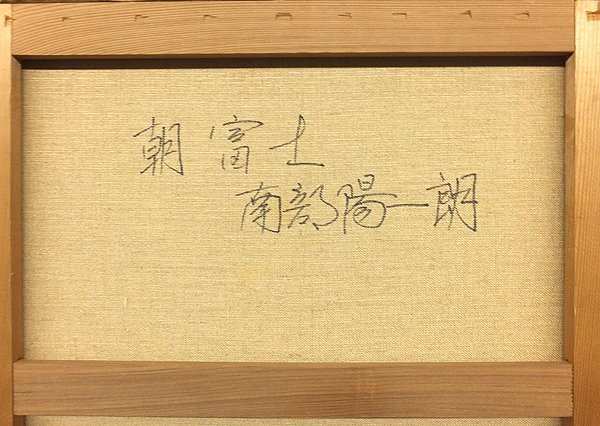 朝富士
南部陽一朗